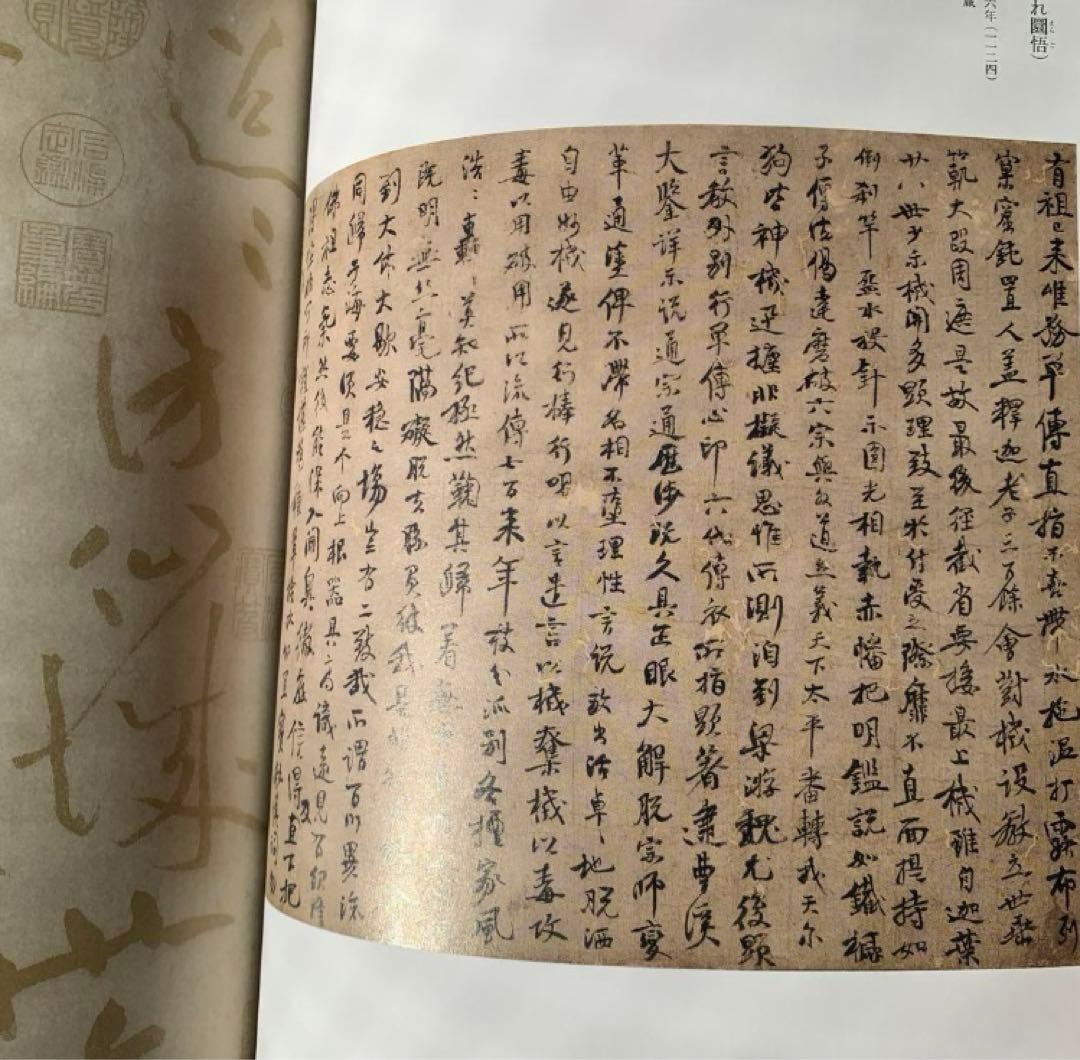 れ圜悟)
六年(一一二四)
蔵
有祖已来唯務單傳直指不喜帶水拖泥打露布列
窠窟鈍置人盖釋迦老子三百餘會對機設教立世垂
範大段周遮是故最後径截省要接最上機雖自迦葉
廿八世少示機関多顯理致至於付受之際靡不直面提持如
倒刹竿盋水投針示圓光相執赤幡把明鑑説如鐵橛
子傳法偈達磨破六宗與外道立義天下太平番轉我天尔
狗皆神機迅捷非擬議思惟所測洎到梁游魏尤復顯
言教外別行單傳心印六代傳衣所指顯著逮曹溪
大鑒詳示説通宗通歴涉既久具正眼大解脱宗師變
革通塗俾不滯名相不墮理性言説放出活卓〻地脱洒
自由妙機遂見行棒行喝以言遣言以機奪機以毒攻
毒以用破用所以流傳七百来年枝分派別各擅家風
浩〻轟〻莫知紀極然鞠其歸着無
既明無丝毫隔礙脱去勝負彼我是非
到大休大歇安穏之場豈有二致哉所謂百川異流
同歸于海要須是个向上根器具高識遠見有紹隆
佛祖志氣然後能深入閫奥徹底信得及直下把